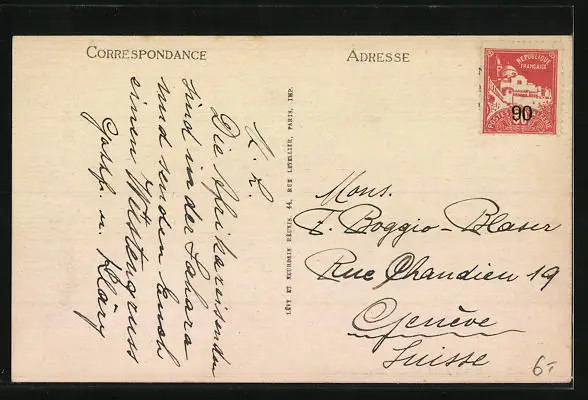 CORRESPONDANCE
M. L.
Die Afrikareisenden
sind in der Sahara
und senden Euch
einen Wüstengruss
u. Kläry
LÉVY ET NEURDEIN RÉUNIS, 44, RUE LETELLIER, PARIS, IMP.
ADRESSE
RÉPUBLIQUE
FRANÇAISE
90
POSTES
Mons.
E. Boggio-Blaser
Rue Chandieu 19
Genève
Suisse
6.-